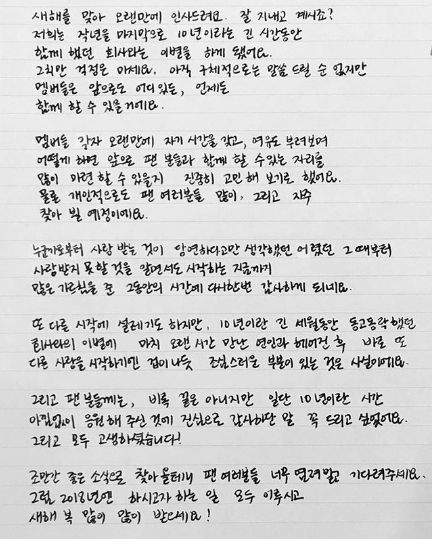 새해를 맞아 오랜만에 인사드려요. 잘 지내고 계시죠?
저희는 작년을 마지막으로 10년이라는 긴 시간동안
함께 했던 회사와는 이별을 하게 됐어요.
그치만 걱정은 마세요. 아직 구체적으로는 말씀 드릴 순 없지만
멤버들은 앞으로도 어디 있든, 언제든
함께 할 수 있을거에요.
멤버들 각자 오랜만에 자기 시간을 갖고, 여유도 부려보며
어떻게 하면 앞으로 팬 분들과 함께 할 수 있는 자리를
많이 마련 할 수 있을지 진중히 고민 해 보기로 했어요.
물론 개인적으로도 팬 여러분들 많이, 그리고 자주
찾아 뵐 예정이에요.
누군가로부터 사랑 받는 것이 당연하다고만 생각했던 어렸던 그 때부터
사랑받지 못할 것을 알면서도 시작하는 지금까지
많은 가르침을 준 그동안의 시간에 다시한번 감사하게 되네요.
또 다른 시작에 설레기도 하지만, 10년이란 긴 세월동안 동고동락했던
회사와의 이별에 마치 오랜 시간 만난 연인과 헤어진 후 바로 또
다른 사랑을 시작하기엔 겁이 나듯 조심스러운 부분이 있는 것은 사실이에요.
그리고 팬 분들께는, 비록 끝은 아니지만 일단 10년이란 시간
아낌없이 응원해 주신 것에 진심으로 감사하단 말 꼭 드리고 싶었어요.
그리고 모두 고생하셨습니다!
조만간 좋은 소식으로 찾아 올테니 팬 여러분들 너무 염려말고 기다려주세요.
그럼 2018년엔 하시고자 하는 일 모두 이루시고
새해 복 많이 많이 받으세요!